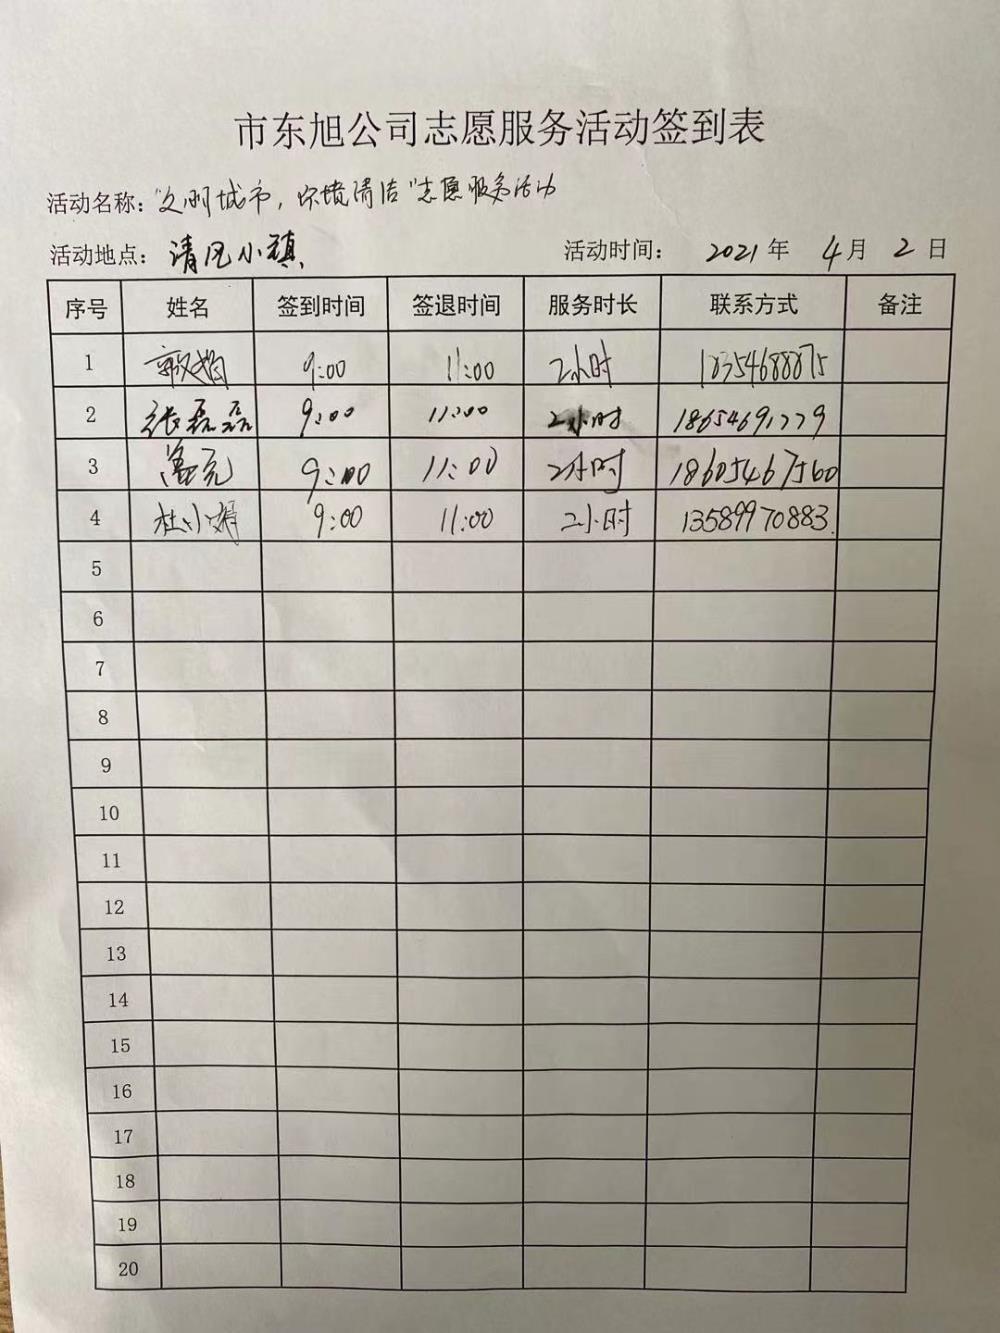 市东旭公司志愿服务活动签到表
活动名称："文明城市，环境清洁"志愿服务活动
活动地点：清风小镇 活动时间：2021年4月2日
序号 姓名 签到时间 签退时间 服务时长 联系方式 备注
1 9:00 11:00 2小时 18354688875
2 张磊磊 9:00 11:00 2小时 18654691779
3 9:00 11:00 2小时 18605467560
4 杜小娟 9:00 11:00 2小时 13589970883
5
6
7
8
9
10
11
12
13
14
15
16
17
18
19
20